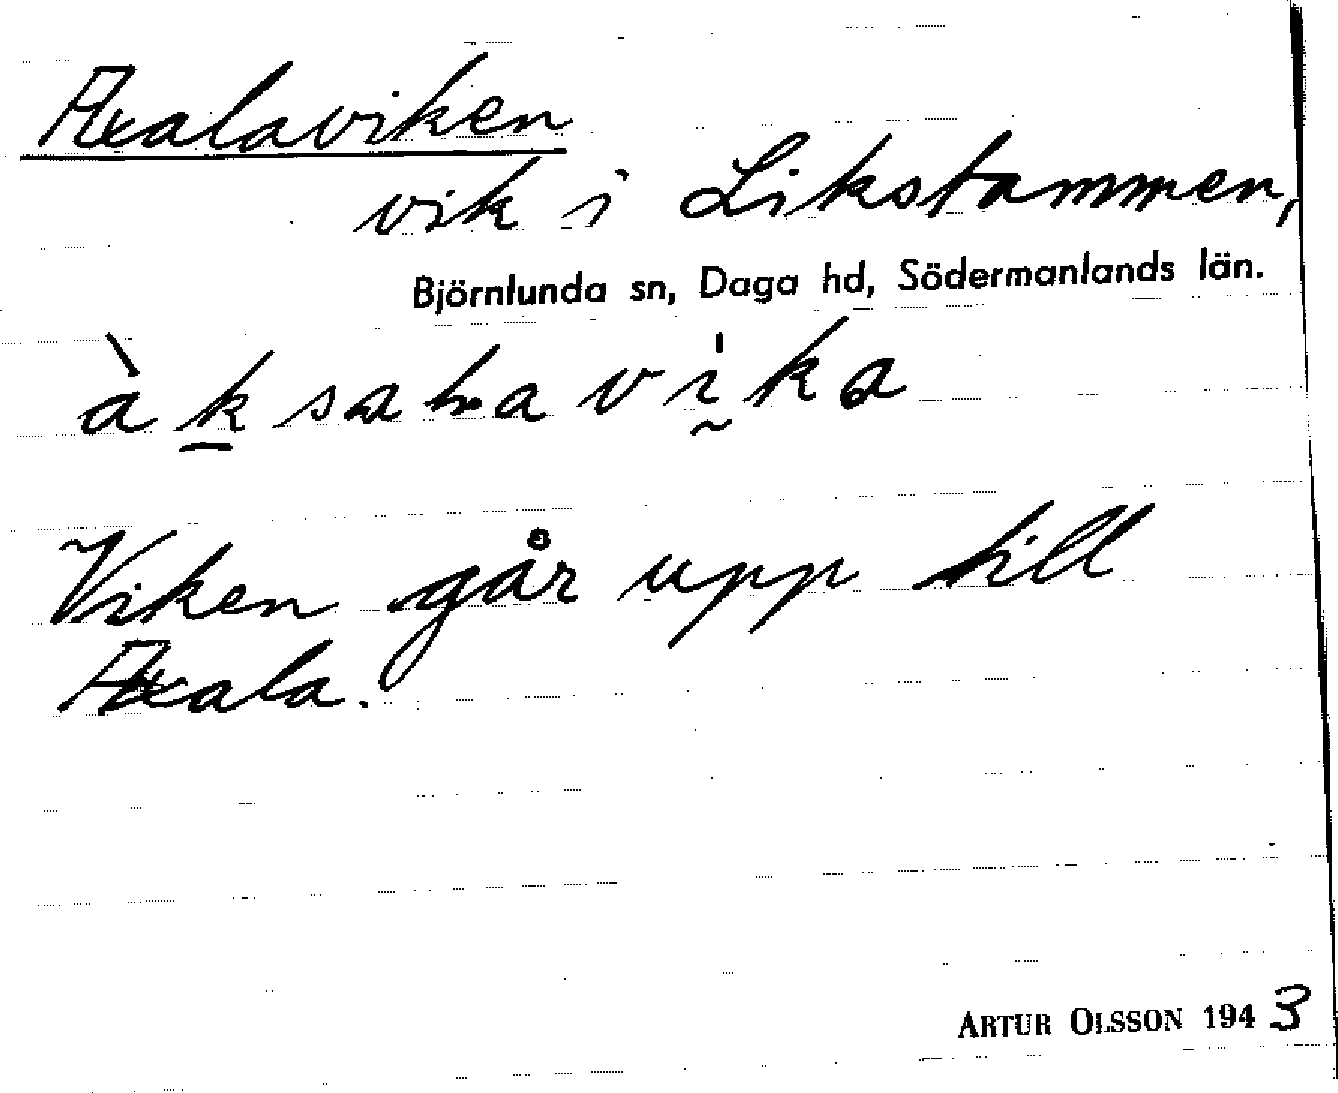 Axalaviken
vik i Likstammen,
Björnlunda sn, Daga hd, Södermanlands län.
Viken går upp till
Axala.
ARTUR OLSSON 1943